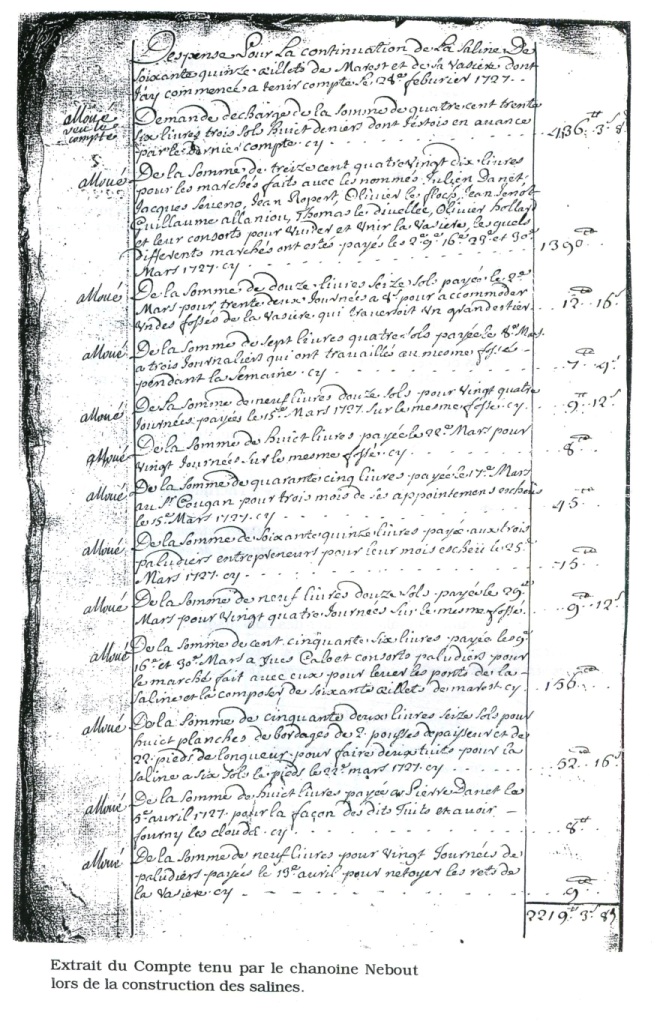 Despense Pour La continuation de La Saline De
soixante quinze œillets de Marest et de sa Vasiere dont
J'ay commencé a tenir compte le 24e febvrier 1727
alloué
veu le
compte
Demande decharge de la somme de quatre cent trente
six livres trois sols huict deniers dont j'estois en avance
par le dernier compte. cy 436tt 3s 8
alloué De la Somme de treize cent quatre vingt dix livres
pour les marchés faits avec les nommés Julien Danet
Jacques Seveno, Jean Ropert, Olivier le floch, Jean
Guillaume allaniou, Thomas le divellec, Olivier hollard
et leur consorts pour Vuider et Unir la Vasiere, les quels
differents marchés ont estés payés les 2e 9e 16e 23e et 30e
Mars 1727. cy 1390tt
alloué De la Somme de douze livres seize sols payée le 2e
Mars pour trente deux Journées a 8s pour accommoder
un des fossés de la Vasiere qui traversoit un grand estier 12 16s
alloué De la Somme de sept livres quatre sols payée le 8e Mars
a trois Journaliers qui ont travaillé au mesme fossé
pendant la semaine. cy 7. 4s
alloué De la Somme de neuf livres douze sols pour vingt quatre
Journées payées le 15e Mars 1727. sur le mesme fossé. cy 9tt 12s
alloué De la Somme de huict livres payée le 22e Mars pour
vingt Journées sur le mesme fossé. cy 8tt
alloué De la Somme de quarante cinq livres payée le 17e Mars
au Sr Cougan pour trois mois de ses appointemens escheus
le 15e Mars 1727. cy 45tt
alloué De la Somme de soixante quinze livres payée aux trois
paludiers entrepreneurs pour leur mois escheu le 25
Mars 1727. cy 75
alloué De la Somme de neuf livres douze sols payée le 29e
Mars pour Vingt quatre Journées sur le mesme fossé 9tt 12s
alloué De la Somme de cent cinquante six livres payée les 9e
16e et 30e Mars a Yves Calvet consorts paludiers pour
le marché fait avec eux pour lever les ponts de la
saline et la composer de soixante œillets de marest cy 156tt
alloué De la Somme de cinquante deux livres seize sols pour
huict planches de bordages de 2. pousses d'epaisseur et de
22. pieds de longueur pour faire deux tuits pour la
saline a six sols le pieds le 22e mars 1727. cy 52tt 16s
alloué De la Somme de huict livres payée a Pierre Danet le
5e avril 1727. pour la façon des dits Tuits et avoir
fourny les clouds. cy 8tt
alloué De la Somme de neuf livres pour vingt Journées de
paludiers payées le 13e avril pour netoyer les rets de
la Vasiere cy 9tt
2219tt 3s 8d
Extrait du Compte tenu par le chanoine Nebout
lors de la construction des salines.